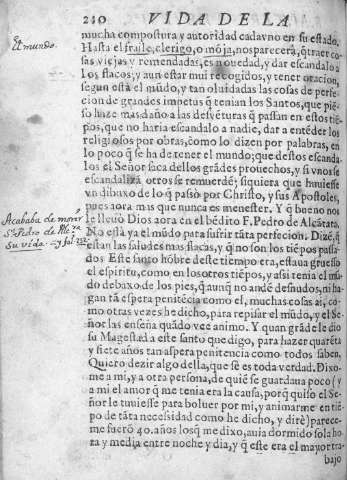 240 VIDA DE LA
mucha compostura y autoridad cadavno en su estado.
El mundo.
Hasta el fraile, clerigo, o mõja, nos parecerà, q̃ traer co-
sas viejas y remendadas, es nouedad, y dar escandalo a
los flacos; y aun estar mui recogidos, y tener oracion,
segun està el mũdo, y tan oluidadas las cosas de perfe-
cion de grandes impetus q̃ tenian los Santos, que piẽ-
so haze mas daño a las desvẽturas q̃ passan en estos tiẽ-
pos, que no haria escandalo a nadie, dar a entẽder los
religiosos por obras, como lo dizen por palabras, en
lo poco q̃ se ha de tener el mundo; que destos escanda-
los el Señor saca dellos grãdes prouechos, y si vnos se
escandalizã otros se remuerdẽ; siquiera que huuiesse
vn dibuxo de lo q̃ passò por Christo, y sus Apostoles,
pues aora mas que nunca es menester. Y q̃ bueno nos
Acababa de morir
le lleuò Dios aora en el bẽdito F. Pedro de Alcãtara.
Sn. Pedro de
No està ya el mũdo para sufrir tãta perfecion. Dizẽ, q̃
Su vida
estan las saludes mas flacas, y q̃ no son los tiẽpos passa-
dos Este santo hõbre deste tiempo era, estaua gruesso
el espiritu, como en los otros tiẽpos, y assi tenia el mũ-
do debaxo de los pies, q̃ aunq̃ no andẽ desnudos, ni ha-
gan tã aspera penitẽcia como el, muchas cosas ai, co-
mo otras vezes he dicho, para repisar el mũdo, y el Se-
ñor las enseña quãdo vee animo. Y quan grãde le dio
su Magestad a este santo que digo, para hazer quarẽta
y siete años tan aspera penitencia como todos saben.
Quiero dezir algo della, que sè es toda verdad. Dixo-
me a mi, y a otra persona, de quiẽ se guardaua poco (y
a mi el amor q̃ me tenia era la causa, porq̃ quiso el Se-
ñor le tuuiesse para boluer por mi, y animarme en tiẽ-
po de tãta necessidad como he dicho, y dirè) parece-
me fuerõ 40. años los q̃ me dixo, auia dormido sola ho-
ra y media entre noche y dia, y q̃ este era el mayor tra-
bajo